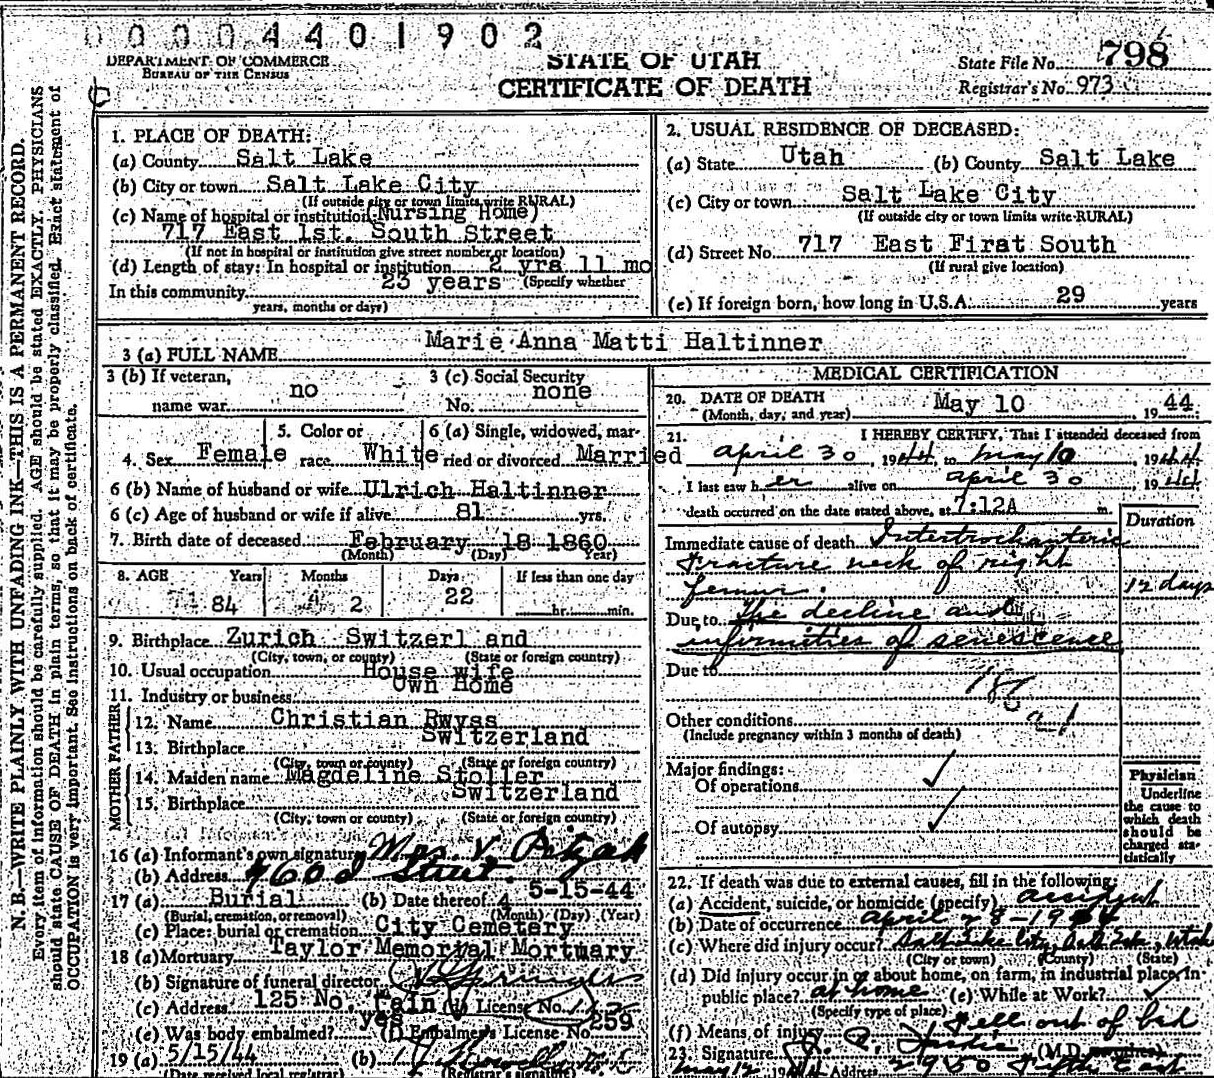 00004401902
DEPARTMENT OF COMMERCE
BUREAU OF THE CENSUS
STATE OF UTAH
CERTIFICATE OF DEATH
State File No. 798
Registrar's No. 973
N. B.—WRITE PLAINLY WITH UNFADING INK—THIS IS A PERMANENT RECORD.
Every item of information should be carefully supplied. AGE should be stated EXACTLY. PHYSICIANS
should state CAUSE OF DEATH in plain terms, so that it may be properly classified. Exact statement of
OCCUPATION is very important. See instructions on back of certificate.
1. PLACE OF DEATH:
(a) County Salt Lake
(b) City or town Salt Lake City
(If outside city or town limits write RURAL)
(c) Name of hospital or institution: (Nursing Home)
717 East 1st. South Street
(If not in hospital or institution give street number or location)
(d) Length of stay: In hospital or institution 2 yrs 11 mo
(Specify whether
In this community 23 years
years, months or days)
2. USUAL RESIDENCE OF DECEASED:
(a) State Utah (b) County Salt Lake
(c) City or town Salt Lake City
(If outside city or town limits write RURAL)
(d) Street No. 717 East First South
(If rural give location)
(e) If foreign born, how long in U.S.A. 29 years
3 (a) FULL NAME Marie Anna Matti Haltinner
3 (b) If veteran, name war no
3 (c) Social Security No. none
4. Sex Female
5. Color or race White
6 (a) Single, widowed, married or divorced Married
6 (b) Name of husband or wife Ulrich Haltinner
6 (c) Age of husband or wife if alive 81 yrs.
7. Birth date of deceased February 18 1860
(Month) (Day) Year)
8. AGE Years Months Days If less than one day
84 2 22 hr. min.
9. Birthplace Zurich Switzerl and
(City, town, or county) (State or foreign country)
10. Usual occupation House wife
11. Industry or business Own Home
FATHER
12. Name Christian Rwyss
13. Birthplace Switzerland
(City, town or county) (State or foreign country)
MOTHER
14. Maiden name Magdeline Stoller
15. Birthplace Switzerland
(City, town or county) (State or foreign country)
16 (a) Informant's own signature Mrs. V.
(b) Address 460 Street
17 (a) Burial (b) Date thereof 5-15-44
(Burial, cremation, or removal) (Month) (Day) (Year)
(c) Place: burial or cremation City Cemetery
18 (a) Mortuary Taylor Memorial Mortuary
(b) Signature of funeral director
(c) Address 125 No. Main (d) License No.
(e) Was body embalmed? yes (f) Embalmer's License No. 259
19 (a) 5/15/44 (b)
(Date received local registrar) (Registrar's signature)
MEDICAL CERTIFICATION
20. DATE OF DEATH
(Month, day, and year) May 10, 1944
21. I HEREBY CERTIFY, That I attended deceased from
april 30, 1944, to may 10, 1944
I last saw h er alive on april 30 1944
death occurred on the date stated above, at 7:12A m.
Duration
Immediate cause of death Intertrochanteric
Fracture neck of right
femur. 12 days
Due to The decline and
infirmities of senescence
Due to
186
a-1
Other conditions
(Include pregnancy within 3 months of death)
Major findings:
Of operations ✓
Of autopsy ✓
Physician
Underline
the cause to
which death
should be
charged sta-
tistically
22. If death was due to external causes, fill in the following:
(a) Accident, suicide, or homicide (specify) accident
(b) Date of occurrence april 28-1944
(c) Where did injury occur? Salt Lake City, Salt Lake, Utah
(City or town) (County) (State)
(d) Did injury occur in or about home, on farm, in industrial place, in
public place? at home (e) While at Work? ✓
(Specify type of place)
(f) Means of injury Fell out of bed
23. Signature (M.D.
may 12, 1944 Address 2950 Fifth East